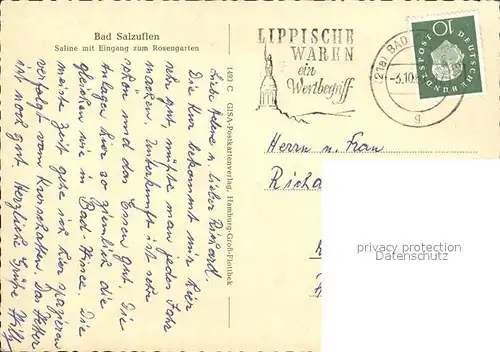 Bad Salzuflen
Saline mit Eingang zum Rosengarten
Liebe Helene u. lieber Richard
Die Kur bekommt mir hier
sehr gut, müßte man jedes Jahr
machen. Unterkunft ist sehr
schön und das Essen gut. Die
Anlagen hier so ziemlich die
gleichen wie in Bad. Die
meiste Zeit gehe ich hier spazieren
verfolgt vom Kurschatten. Das Wetter
ist noch gut Herzliche Grüße Willi
1489 C GISA-Postkartenverlag, Hamburg-Groß-Flottbek
LIPPISCHE
WAREN
ein
Wertbegriff
(21a) BAD
-3.10.
g
10
DEUTSCHE
BUNDESPOST
Herrn u. Frau
Richa
privacy protection
Datenschutz